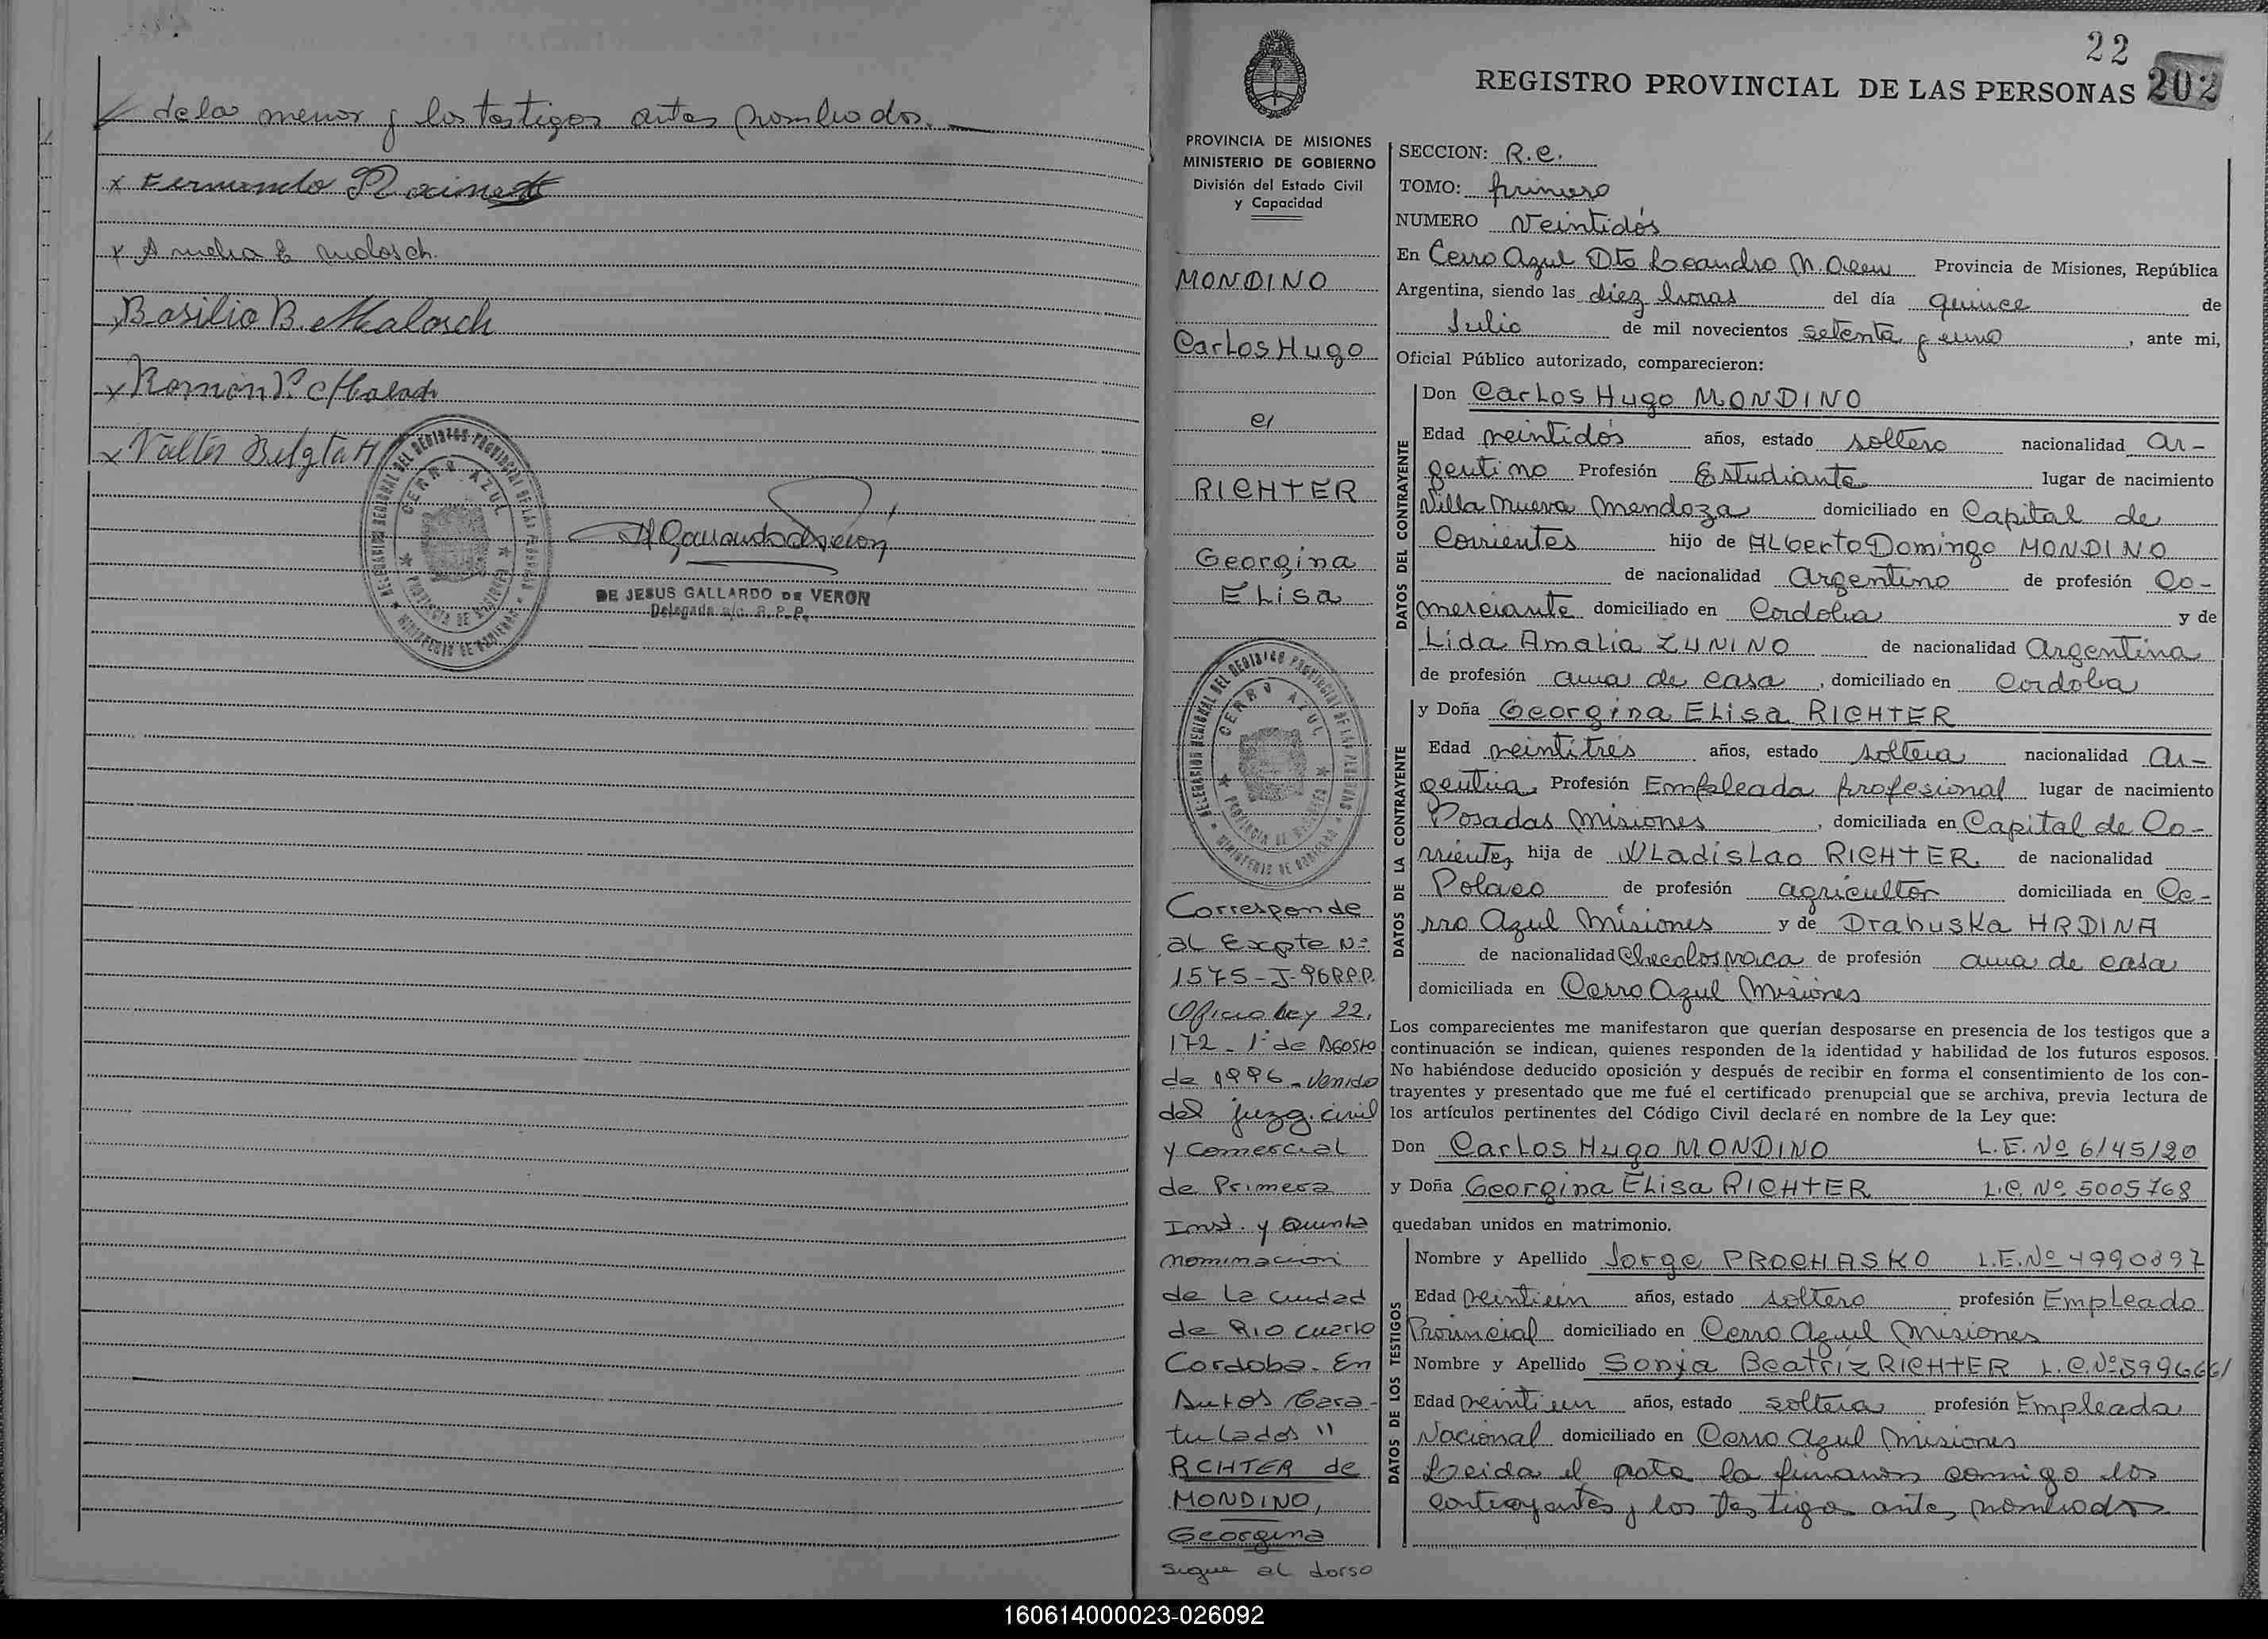 de la menor y los testigos antes nombrados.
x Fernando
x Amelia E Malosch.
x Basilio B. Malosch
x Ramón V. Malosch
x Valter Belgta H
DELEGACION REGIONAL DEL REGISTRO PROVINCIAL DE LAS PERSONAS
CERRO AZUL
PROVINCIA DE MISIONES
MINISTERIO DE GOBIERNO
DE JESUS GALLARDO DE VERON
Delegada a/c. R. P. P.
22
REGISTRO PROVINCIAL DE LAS PERSONAS 202
PROVINCIA DE MISIONES
MINISTERIO DE GOBIERNO
División del Estado Civil
y Capacidad
MONDINO
Carlos Hugo
c/
RICHTER
Georgina
Elisa
DELEGACION REGIONAL DEL REGISTRO PROVINCIAL DE LAS PERSONAS
CERRO AZUL
PROVINCIA DE MISIONES
MINISTERIO DE GOBIERNO
Corresponde
al Expte Nº
1575-J-96 R.P.P.
Oficio Ley 22.
172 - 1º de AGOSTO
de 1996 - Venido
del juzg. civil
y Comercial
de Primera
Inst. y Quinta
nominacion
de La Ciudad
de Rio Cuarto
Cordoba. En
Autos Cara-
tulados "
RCHTER de
MONDINO,
Georgina
sigue al dorso
SECCION: R.C.
TOMO: primero
NUMERO Veintidós
En Cerro Azul Dto Leandro N. Alem Provincia de Misiones, República
Argentina, siendo las diez horas del día quince de
Julio de mil novecientos setenta y uno, ante mi,
Oficial Público autorizado, comparecieron:
DATOS DEL CONTRAYENTE
Don Carlos Hugo MONDINO
Edad veintidós años, estado soltero nacionalidad Ar-
gentino Profesión Estudiante lugar de nacimiento
Villa Nueva Mendoza domiciliado en Capital de
Corrientes hijo de ALberto Domingo MONDINO
de nacionalidad Argentino de profesión Co-
merciante domiciliado en Cordoba y de
Lida Amalia ZUNINO de nacionalidad Argentina
de profesión ama de casa, domiciliado en Cordoba
DATOS DE LA CONTRAYENTE
y Doña Georgina ELisa RICHTER
Edad veintitrés años, estado soltera nacionalidad Ar-
gentina Profesión Empleada profesional lugar de nacimiento
Posadas Misiones, domiciliada en Capital de Co-
rrientes hija de WLadisLao RICHTER de nacionalidad
Polaco de profesión agricultor domiciliada en Ce-
rro Azul Misiones y de Drahuska HRDINA
de nacionalidad Checoloslovaca de profesión ama de casa
domiciliada en Cerro Azul Misiones
Los comparecientes me manifestaron que querían desposarse en presencia de los testigos que a
continuación se indican, quienes responden de la identidad y habilidad de los futuros esposos.
No habiéndose deducido oposición y después de recibir en forma el consentimiento de los con-
trayentes y presentado que me fué el certificado prenupcial que se archiva, previa lectura de
los artículos pertinentes del Código Civil declaré en nombre de la Ley que:
Don Carlos Hugo MONDINO L.E. Nº 6145120
y Doña Georgina ELisa RICHTER L.C. Nº 5005768
quedaban unidos en matrimonio.
DATOS DE LOS TESTIGOS
Nombre y Apellido Jorge PROCHASKO L.E. Nº 4990397
Edad veintiún años, estado soltero profesión Empleado
Provincial domiciliado en Cerro Azul Misiones
Nombre y Apellido Sonja Beatriz RICHTER L.C. Nº 5996661
Edad veintiun años, estado soltera profesión Empleada
Nacional domiciliado en Cerro Azul Misiones
Leida el acta la firmaron conmigo los
contrayentes y los testigos antes nombrados
160614000023-026092